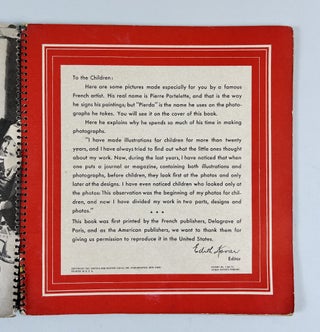 To the Children:
Here are some pictures made especially for you by a famous
French artist. His real name is Pierre Portelette, and that is the way
he signs his paintings; but "Pierda" is the name he uses on the photo-
graphs he takes. You will see it on the cover of this book.
Here he explains why he spends so much of his time in making
photographs.
"I have made illustrations for children for more than twenty
years, and I have always tried to find out what the little ones thought
about my work. Now, during the last years, I have noticed that when
one puts a journal or magazine, containing both illustrations and
photographs, before children, they look first at the photos and only
later at the designs. I have even noticed children who looked only at
the photos. This observation was the beginning of my photos for chil-
dren, and now I have divided my work in two parts, designs and
photos."
* * *
This book was first printed by the French publishers, Delagrave of
Paris, and as the American publishers, we want to thank them for
giving us permission to reproduce it in the United States.
Editor